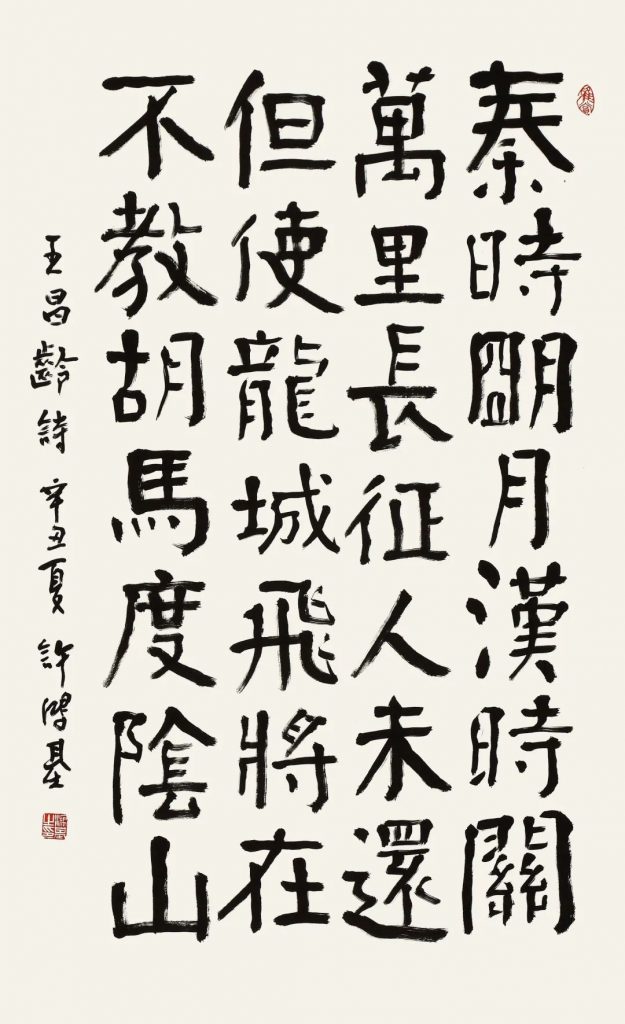 秦時朙月漢時關
萬里長征人未還
但使龍城飛將在
不教胡馬度陰山
王昌齡詩 辛丑夏 許鴻基